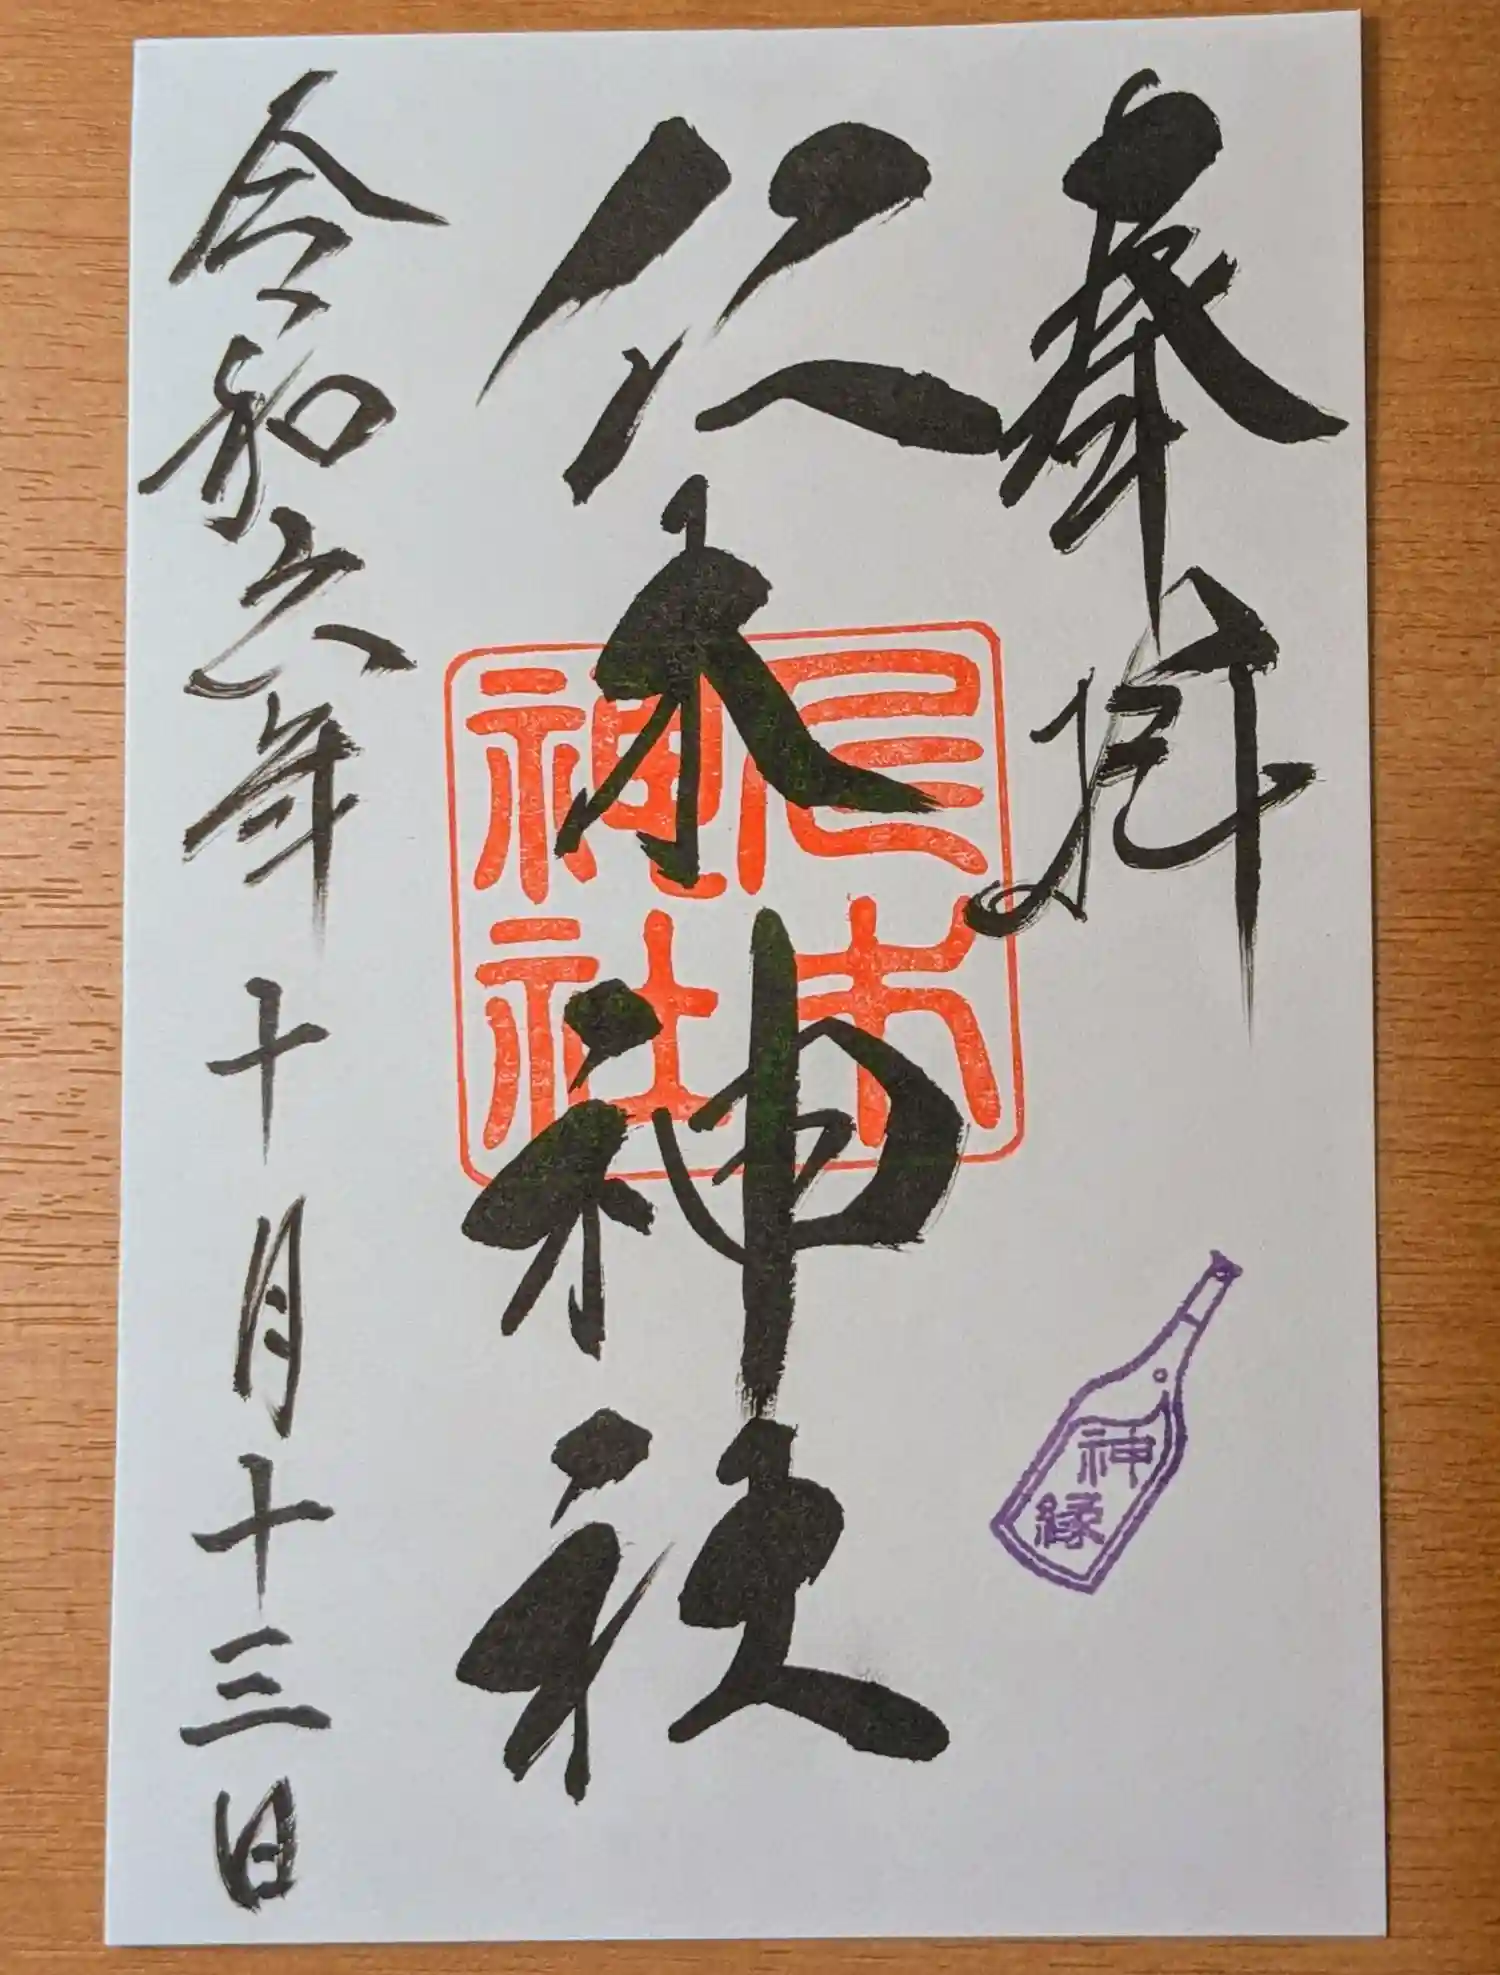 奉拝
仁木神社
仁木
神社
神
縁
令和六年十月十三日